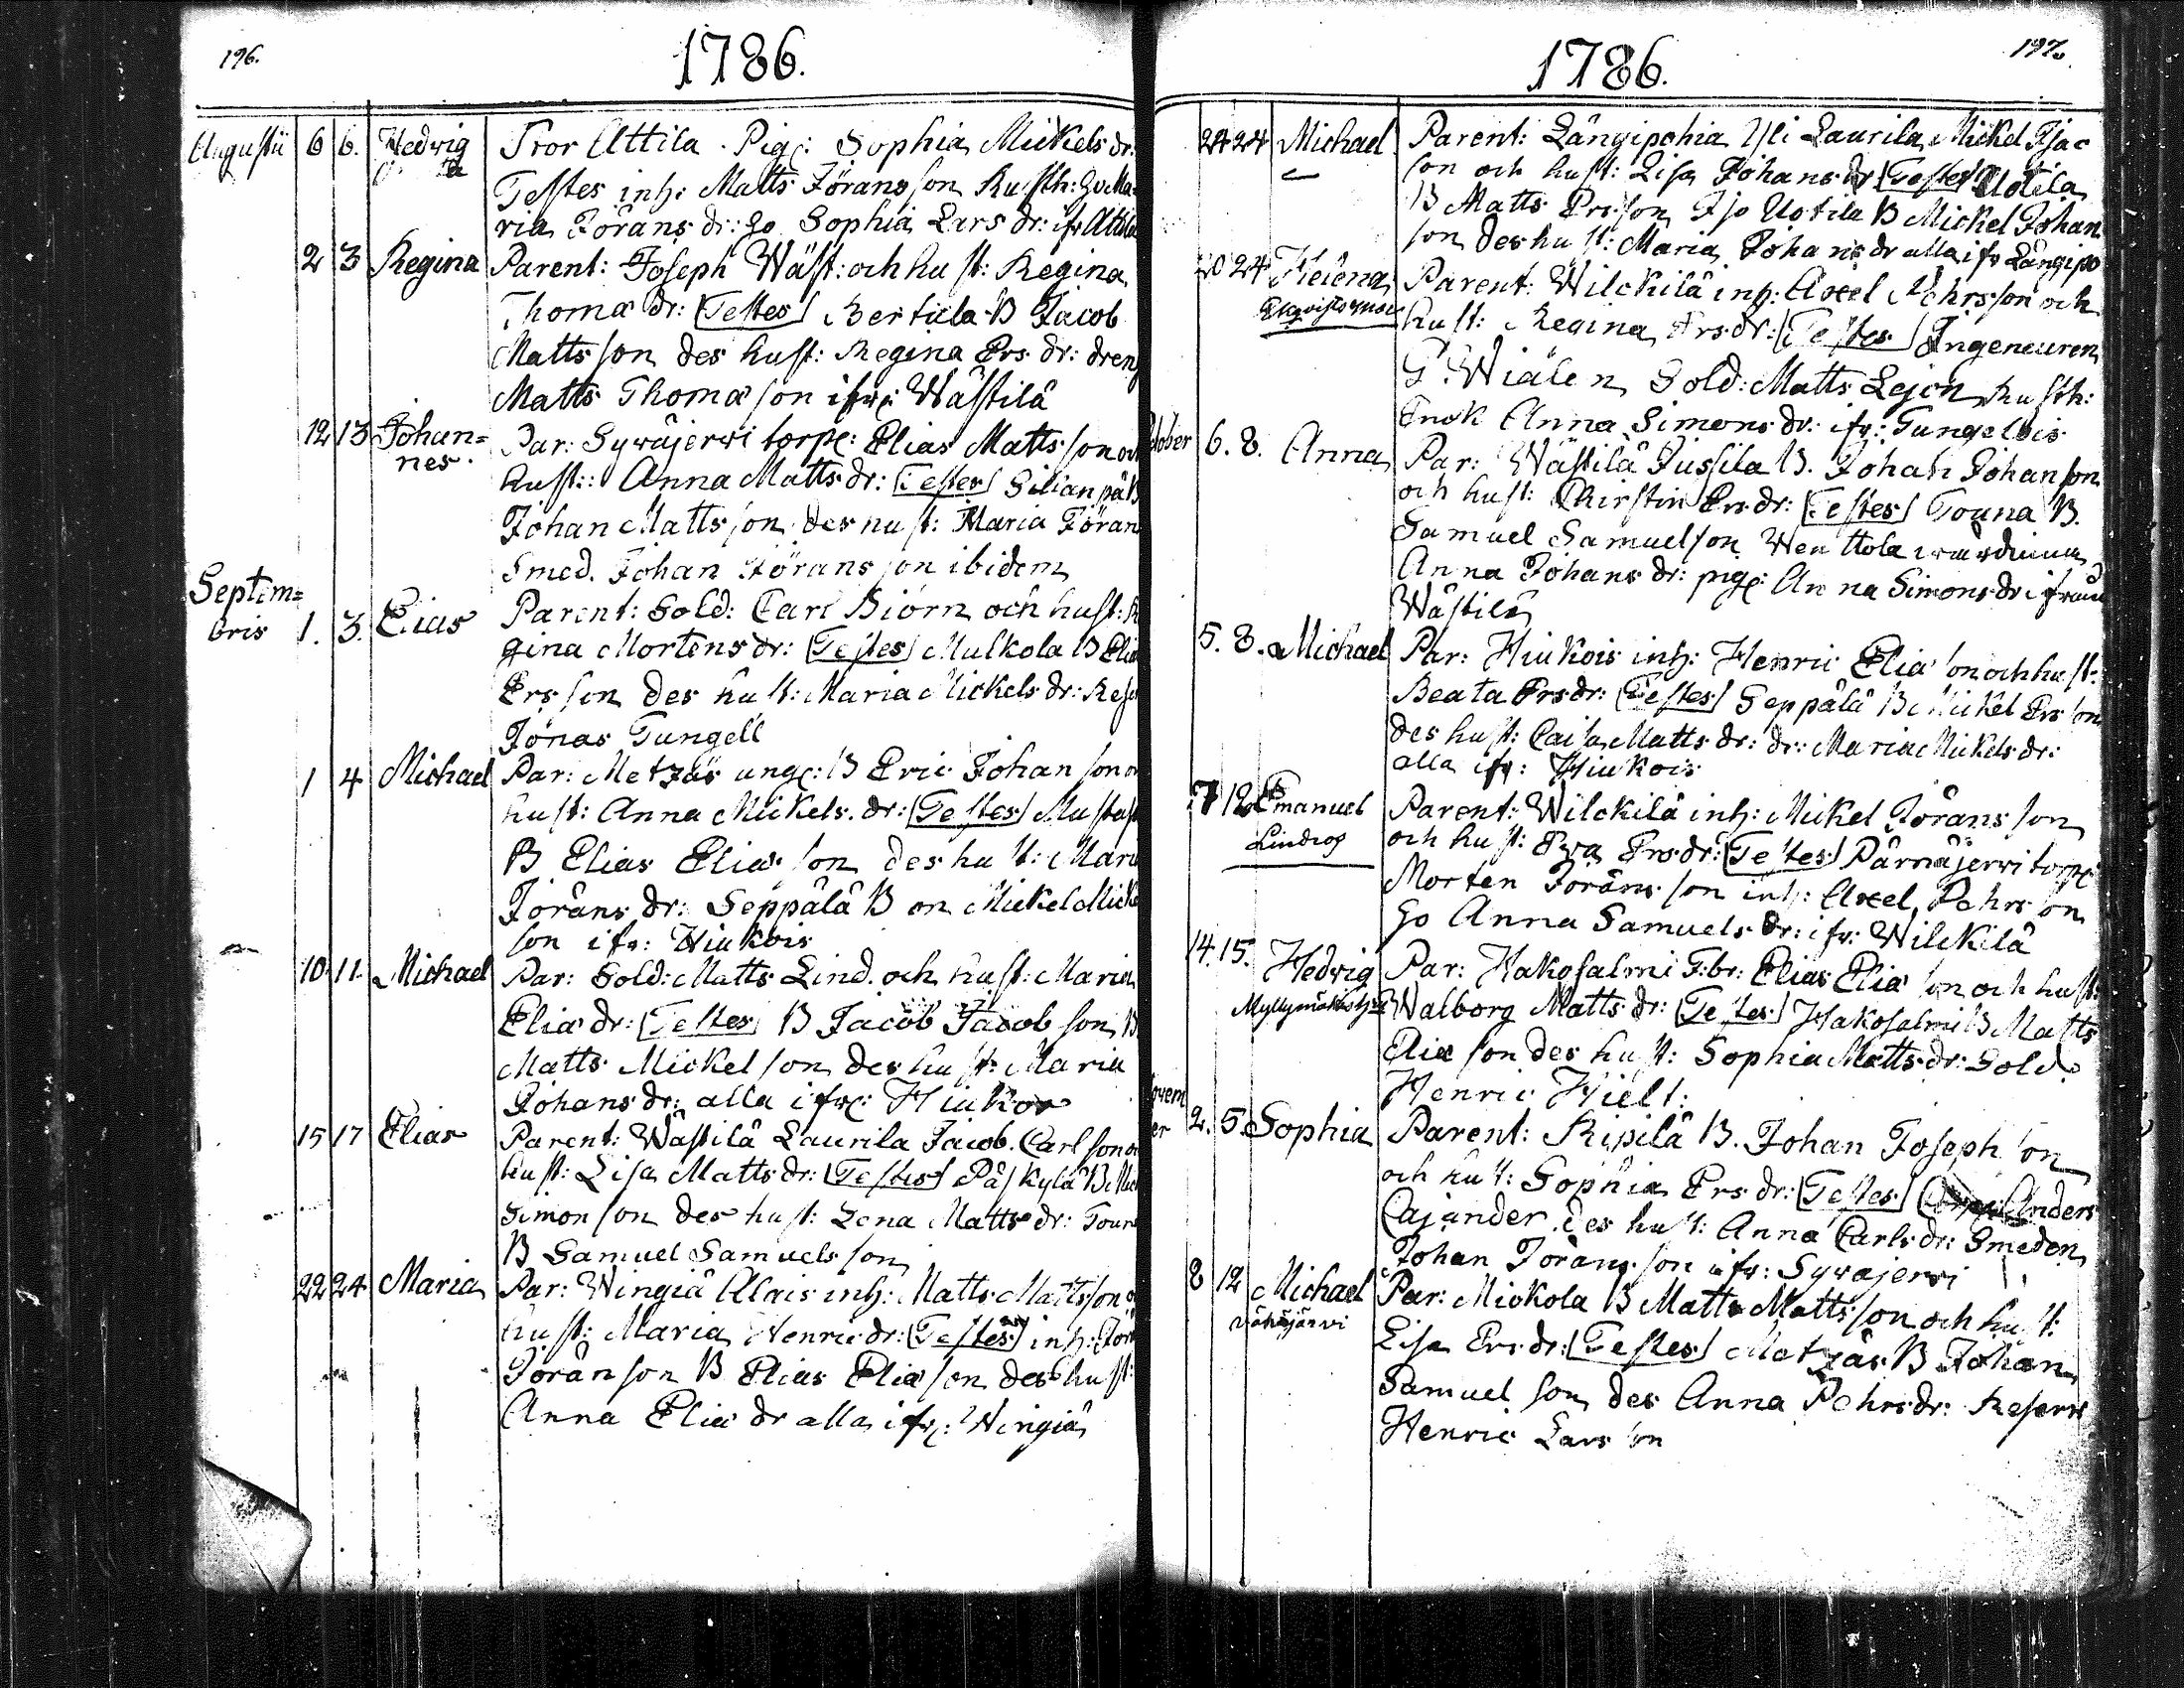 196.
1786.
Augusti 6 6. Hedwig Tror Attila Pig: Sophia Mickels dr:
Testes inh: Matts Jörans son Husth: Go Ma-
ria Jörans dr: Go Sophia Lars dr: ifr Attila
2 3 Regina Parent: Joseph Wäst: och hust: Regina
Thomæ dr: Testes Bertula B Jacob
Mattsson des hust: Regina Ers dr: dreng
Matts Thomæ son ifr: Wästilä
12 13 Johan= Par: Sywäjerwi torp: Elias Matts son och
nes. hust: Anna Matts dr: Testes Silian pä B
Johan Matts son des hust: Maria Jöran
Smed. Johan Jörans son ibidem
Septem= Parent: Sold: Carl Biörn och hust: Re
bris 1. 3. Elias gina Mortens dr: Testes Mulkola B Elia
Ers son des hust: Maria Mickels dr: Rese
Jönas Tungell
1 4 Michael Par: Metzäs ung: B Eric Johan son
hust: Anna Mickels dr: Testes
B Elias Eliæ son des hust: Mari
Jörans dr: Seppälä B on Mickel Micke
son ifr: Hiukois
10 11. Michael Par: Sold: Matts Lind. och hust: Maria
Eliæ dr: Testes B Jacob Jacob son B
Matts Mickel son des hust: Maria
Johans dr: alla ifr: Hiukos
15 17 Elias Parent: Wästilä Laurila Jacob Carl son
hust: Lisa Matts dr: Testes Päskylä B
Simon son des hust: Lena Matts dr: Toun
B Samuel Samuels son
22 24 Maria Par: Wingiä Alais inh: Matts Matts son
hust: Maria Henric dr: Testes inh: Jör
Jöran son B Elias Eliæ son des hust:
Anna Eliæ dr alla ifr: Wingiä
197.
1786.
24 24 Michael Parent: Längipohia Yli Laurila Mickel Isac
son och hust: Lisa Johans dr Testes Uotila
B Matts Ers son Iso Uotila B Mickel Johan
son des hust: Maria Johans dr alla ifr Längipo
20 24 Helena Parent: Wilckilä inh: Axel Pehrs son och
hust: Regina Ers dr: Testes Ingeneuren
G. Wiälen Sold: Matts Lejon husth:
Enok Anna Simons dr: ifr: Tungelois
October 6. 8. Anna Par: Wästilä Jussila B. Johan Johan son
och hust: Chirstin Ers dr: Testes Touna B.
Samuel Samuelson Wenttola
Anna Johans dr: pig: Anna Simons dr ifrån
Wästilä
5. 8. Michael Par: Hiukois inh: Henric Eliæ son och hust:
Beata Ers dr: Testes Seppälä B Mickel Ers son
des hust: Caisa Matts dr: dr: Maria Mickels dr:
alla ifr: Hiukois
7 12 Emanuel Parent: Wilckilä inh: Mickel Jörans son
Lindros och hust: Ewa Ers dr: Testes Pärnäjerwi torp:
Morten Jörans son inh: Axel Pehrs son
Go Anna Samuels dr: ifr: Wilckilä
14. 15. Hedwig Par: Hakosalmi F:br: Elias Eliæ son och hust:
Walborg Matts dr: Testes Hakosalmi B Matts
Eliæ son des hust: Sophia Matts dr: Sold.
Henric Hielt:
2. 5. Sophia Parent: Ripilä B. Johan Joseph son
och hust: Sophia Ers dr: Testes Anders
Cajander des hust: Anna Carls dr: Smeden
Johan Jörans son ifr: Sywäjerwi
8 12 Michael Par: Mickola B Matts Matts son och hust:
Vähäjärvi Lisa Ers dr: Testes Metzäs B Johan
Samuel son des Anna Pehrs dr: Reserv
Henric Lars son